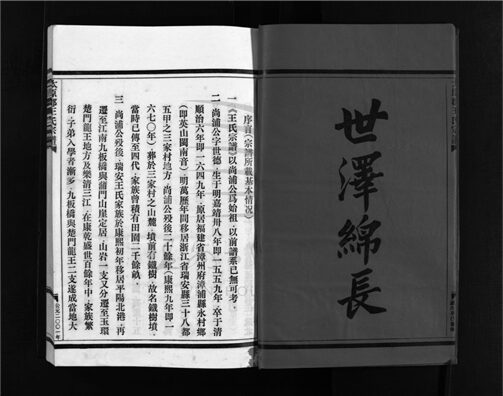 世澤綿長
序言(宗譜所載基本情況)
一 《王氏宗譜》以尚浦公爲始祖,以前譜系已無可考.
二 尚浦公字世德,生于明嘉靖卅八年即一五五九年,卒于清
順治六年即一六四九年,原居福建省漳州府漳浦縣永村鄉
(即英山閩南音)明萬歷年間移居浙江省瑞安縣三十八都
五甲之三家村地方.尚浦公殁後二十餘年(康熙九年即一
六七○年)葬於三家村之山麓,墳前有鐵樹,故名鐵樹墳.
當時已傳至四代,家族曾積有田園二千餘畝.
三 尚浦公殁後,瑞安王氏家族於康熙初年移居平陽北港,再
遷至江南九板橋與蒲門山崖定居.山岩一支又分遷至玉環
楚門龍王地方及樂清三江.在康乾盛世百餘年中,家族繁
衍,子弟入學者漸多,九板橋與楚門龍王二支遂成當地大
太原郡王氏宗譜